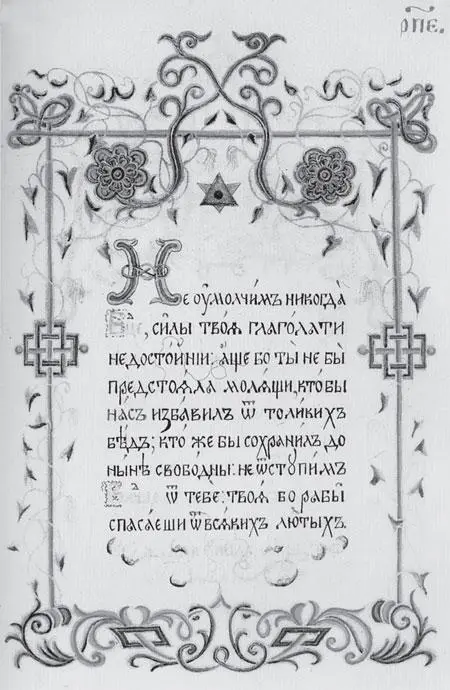 рп҃е.
Не ᲂу҆молчи́мъ никогда̀
Бц҃е, си́лы твоѧ̑ глаго́лати
недосто́йнїи: а҆́ще бо ты̀ не бы̀
предстоѧ́ла молѧ́щи, кто̀ бы
на́съ и҆зба́вилъ ѿ толи́кихъ
бѣ́дъ; кто́ же бы̀ сохрани́лъ до
ны́нѣ свобо́дны: не ѿстꙋ́пимъ
Вⷧ҇чце ѿ тебє̀: твоѧ̑ бо рабы̑
спаса́еши ѿ всѧ́кихъ лю́тыхъ.